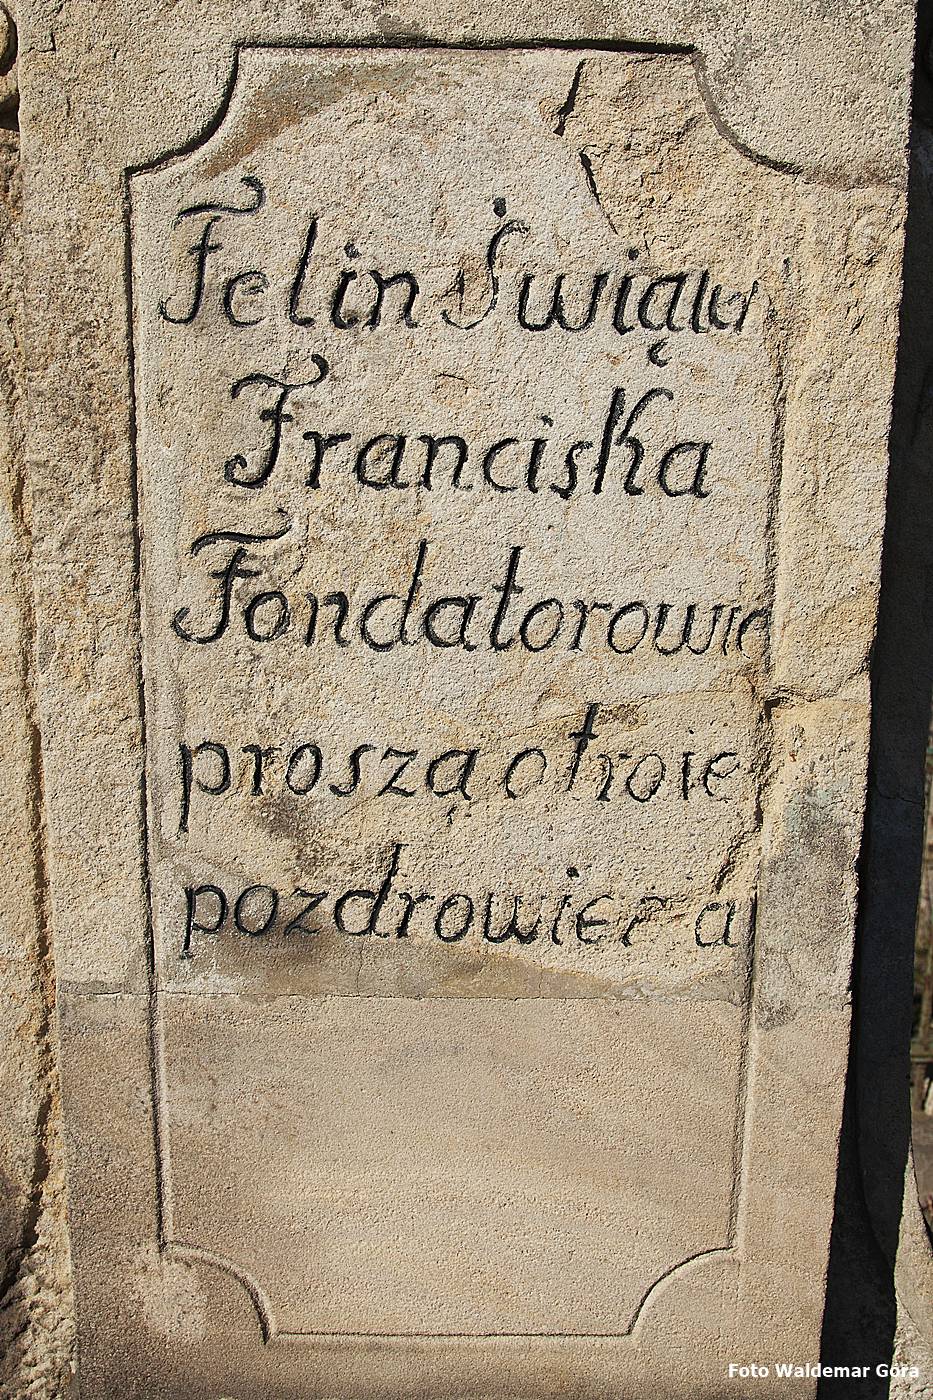 Felin
Franciska
Fondatorowie
proszą o troie
pozdrowień a
Foto Waldemar Góra